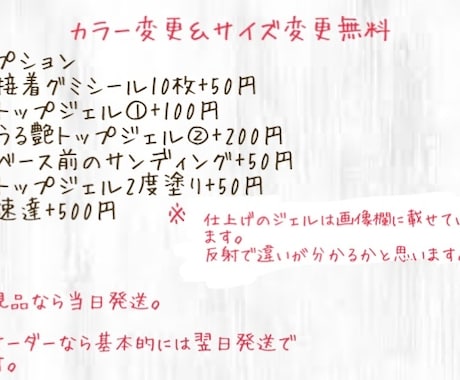 カラー変更&サイズ変更無料
プション
接着グミシール10枚+50円
トップジェル①+100円
うる艶トップジェル②+200円
ベース前のサンディング+50円
トップジェル2度塗り+50円
速達+500円
※ 仕上げのジェルは画像欄に載せてい
ます。
反射で違いが分かるかと思います。
見品なら当日発送。
ーダーなら基本的には翌日発送で
す。